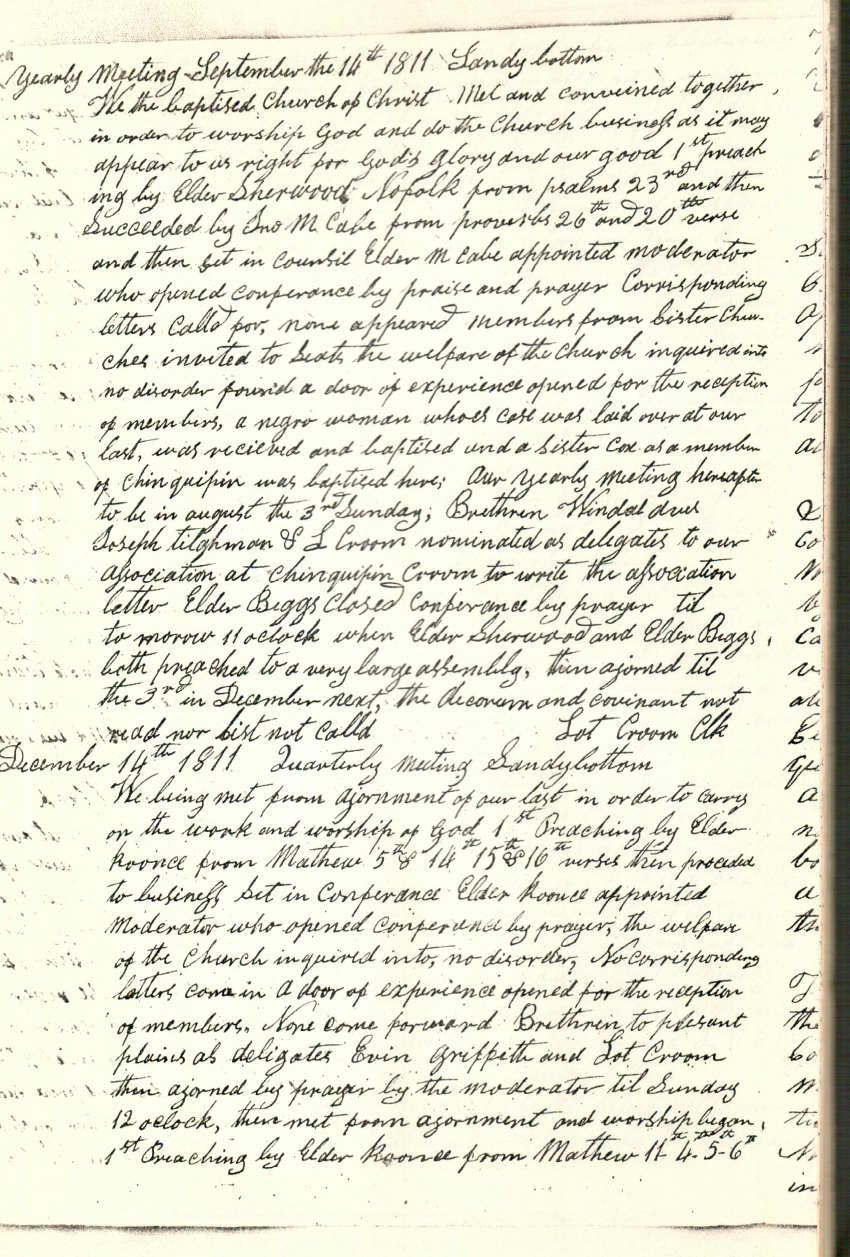 Yearly Meeting September the 14th 1811 Sandy bottom
We the baptised Church of Christ Met and conveined together,
in order to worship God and do the Church business as it may
appear to us right for God's glory and our good 1st preach
ing by Elder Sherwood, Nofolk from psalms 23rd and then
Succeeded by Jno M Cabe from proverbs 26th and 20th verse
and then Set in Counsil Elder M Cabe appointed moderator
who opened conferance by praise and prayer Corrisponding
letters Calld for, none appeared members from Sister Chur-
ches invited to Seats the welfare of the Church inquired into
no disorder found a door of experience opened for the reception
of members, a negro woman whoes case was laid over at our
last, was recieved and baptised and a Sister Cox as a member
of Chinquipin was baptised here; Our yearly meeting hereafter
to be in august the 3rd Sunday; Brethren Windal
Joseph tilghman & L Croom nominated as delegates to our
association at Chinquipin Croom to write the association
letter Elder Biggs Closed Conferance by prayer til
to morow 11 oclock when Elder Sherwood and Elder Biggs,
both preached to a very large assembly, then ajorned til
the 3rd in December next, the decorum and covinant not
read nor list not calld
Lot Croom Clk
December 14th 1811 Quarterly meeting Sandy bottom
We being met from ajornment of our last in order to carry
on the work and worship of God 1st Preaching by Elder
Koonce from Mathew 5th & 14th 15th & 16th verses then proceded
to business Set in Conferance Elder Koonce appointed
Moderator who opened conferance by prayer, the welfare
of the Church inquired into, no disorder, No corrisponding
letters come in A door of experience opened for the reception
of members. None come forward Brethren to plesant
plains as deligates Evin Griffith and Lot Croom
then ajorned by prayer by the moderator til Sunday
12 oclock, then met from ajornment and worship began,
1st Preaching by Elder Koonce from Mathew 11th 4th 5th 6th